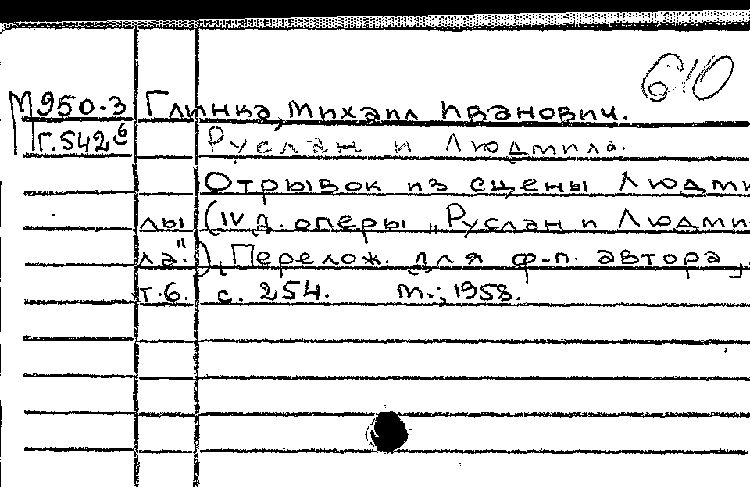 610
М950-3 Глинка, Михаил Иванович.
Г.542б Руслан и Людмила.
Отрывок из сцены Людми
лы (IV д. оперы „Руслан и Людми-
ла"). [Перелож. для ф-п. автора]
т.6. с. 254. М., 1958.